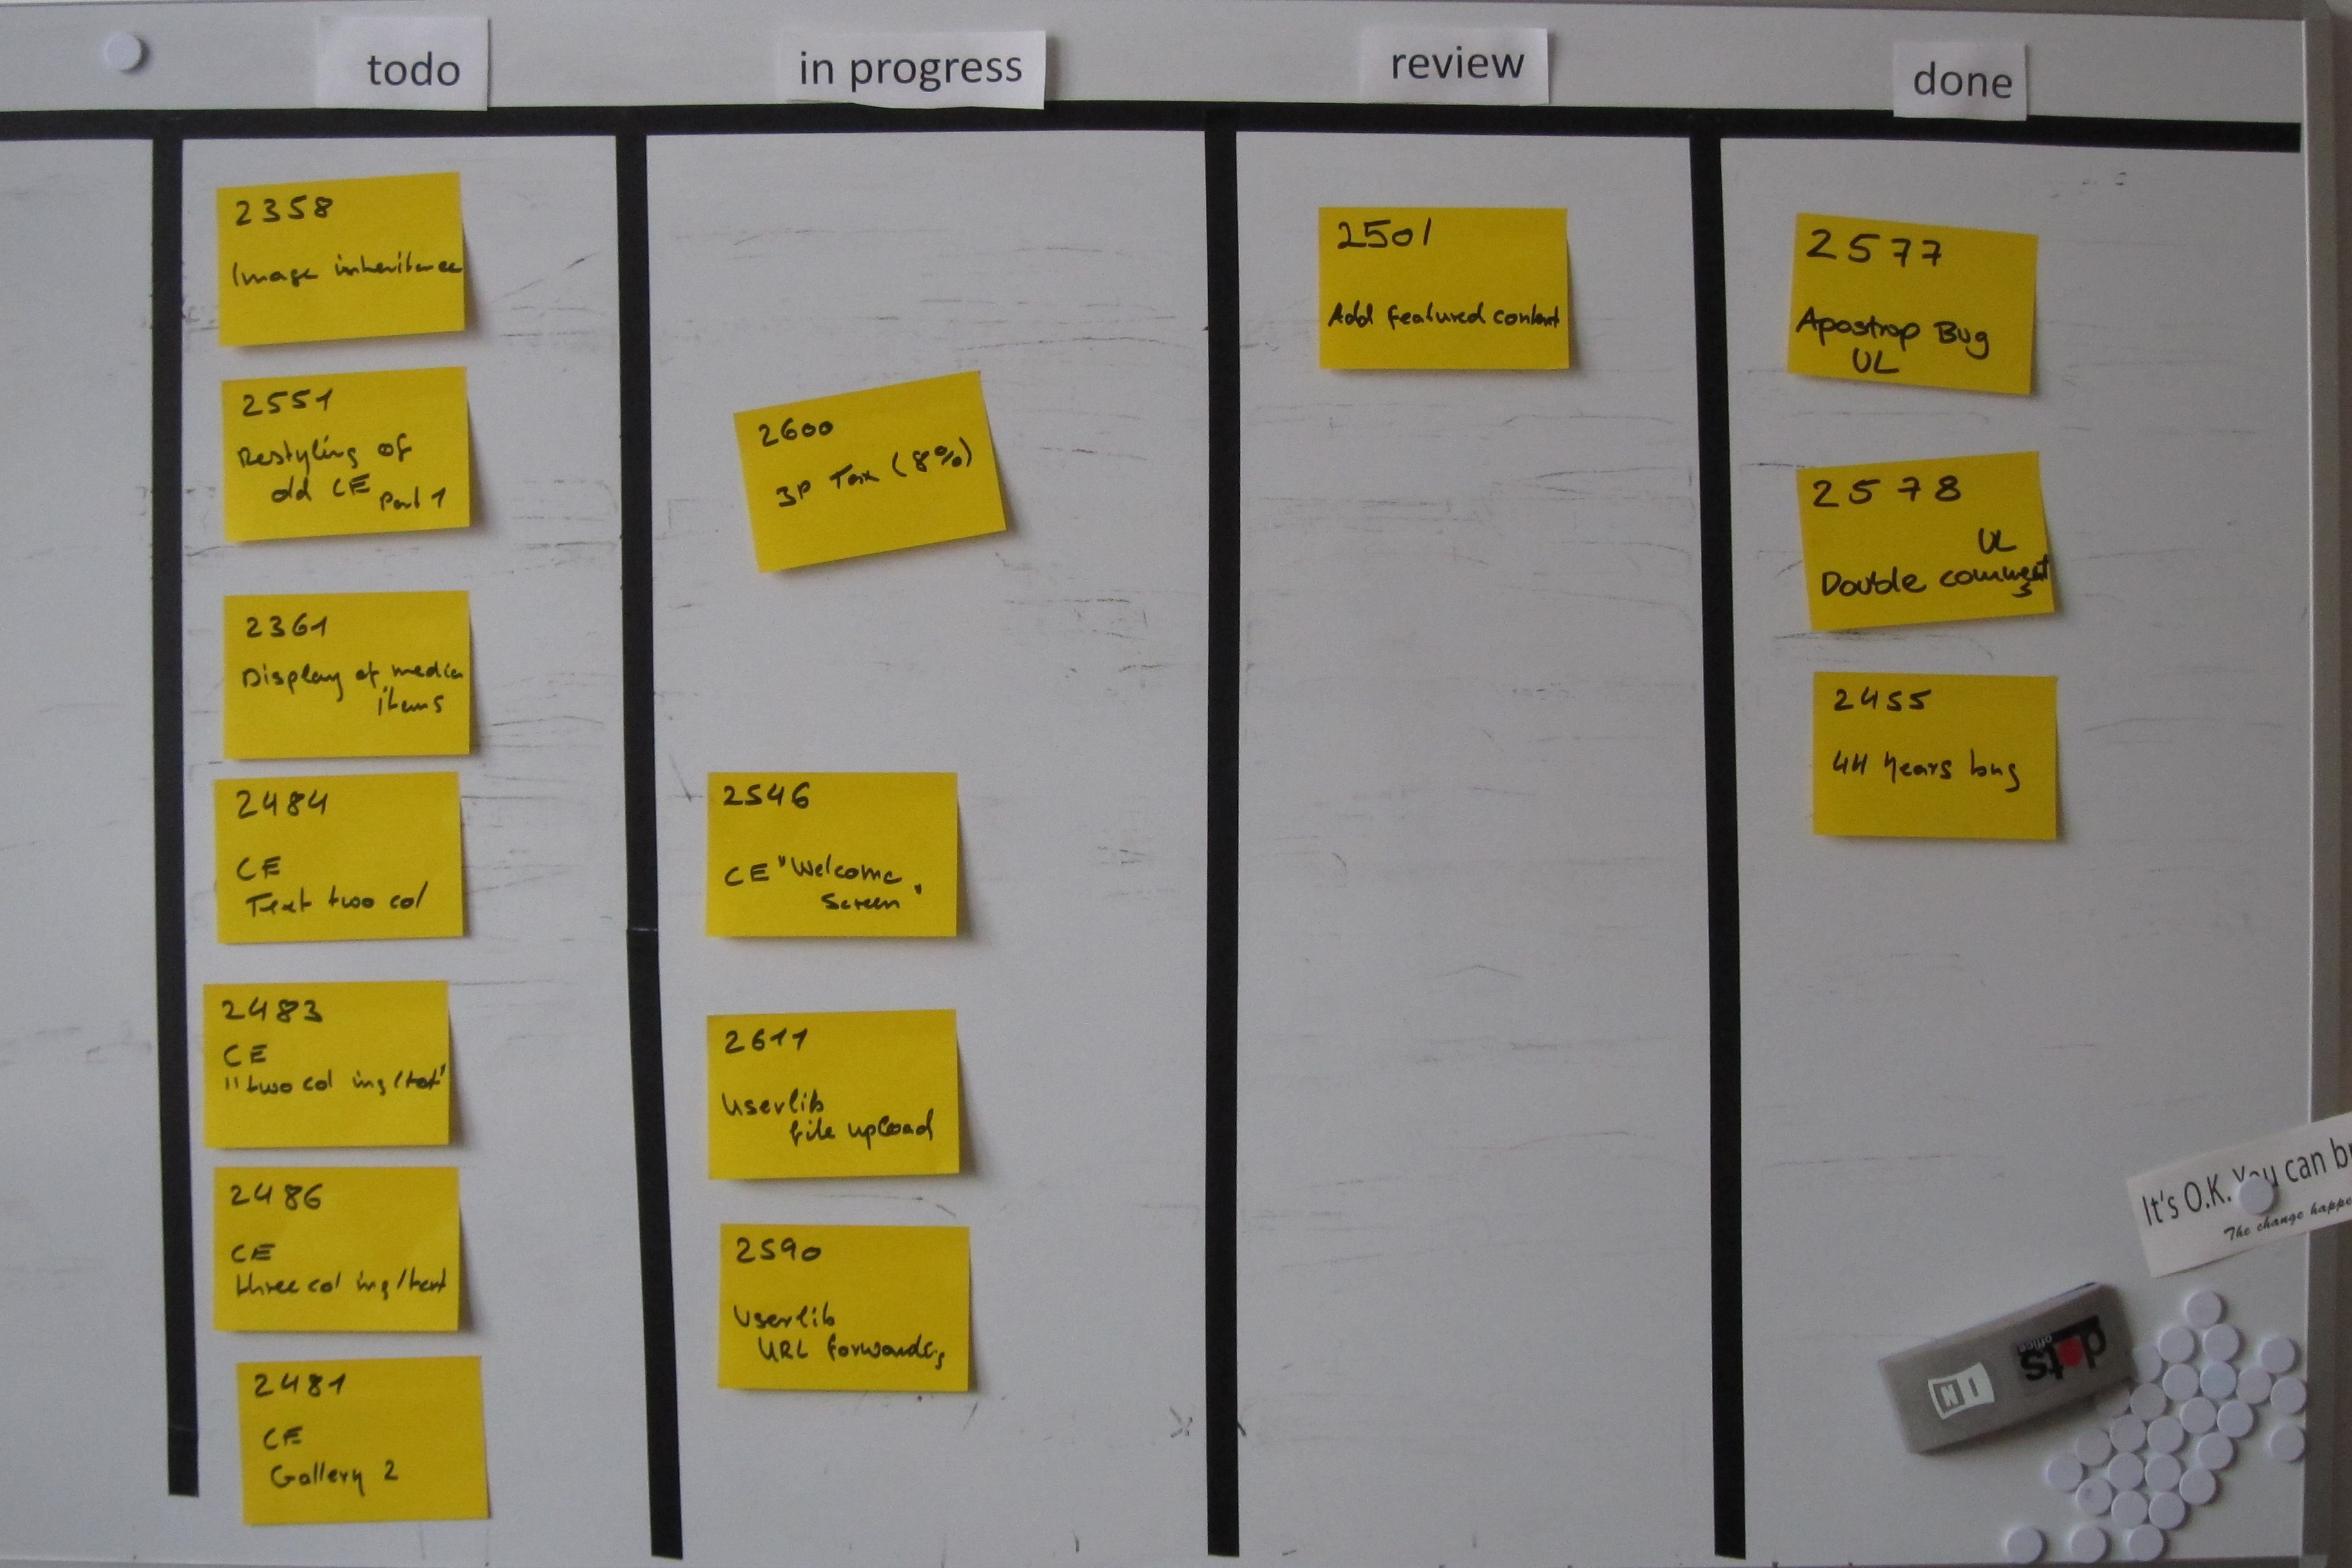 todo
in progress
review
done
2358
Image inheritance
2551
Restyling of
old CE Part 1
2361
Display of media
items
2484
CE
Text two col
2483
CE
"two col img/text"
2486
CE
three col img/text
2481
CE
Gallery 2
2600
3P Tax (8%)
2546
CE "Welcome
Screen"
2611
Userlib
file upload
2590
Userlib
URL forwarding
2501
Add featured content
2577
Apostrop Bug
UL
2578
UL
Double comments
2455
44 years bug
It's O.K. You can
The change
dots
office
IN